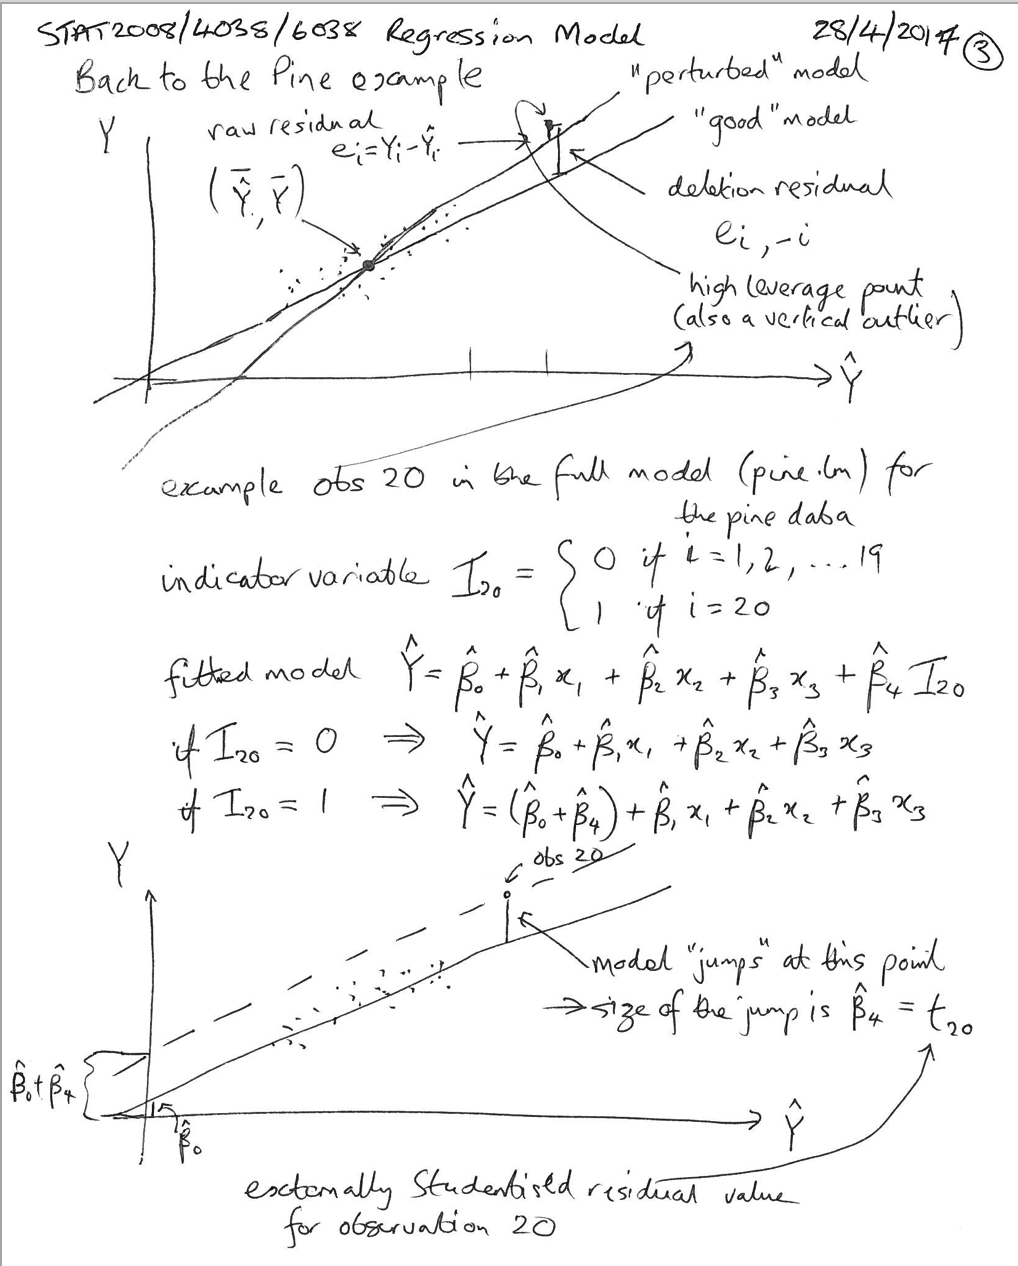 STAT2008/4038/6038 Regression Model 28/4/2017 ③
Back to the Pine example
"perturbed" model
"good" model
Y
raw residual
eᵢ = Yᵢ - Ŷᵢ
(Ŷ̄, Ȳ)
deletion residual
eᵢ,₋ᵢ
high leverage point
(also a vertical outlier)
Ŷ
example obs 20 in the full model (pine.lm) for
the pine data
indicator variable I₂₀ = { 0 if i = 1, 2, ... 19
1 if i = 20
fitted model Ŷ = β̂₀ + β̂₁x₁ + β̂₂x₂ + β̂₃x₃ + β̂₄I₂₀
if I₂₀ = 0 ⇒ Ŷ = β̂₀ + β̂₁x₁ + β̂₂x₂ + β̂₃x₃
if I₂₀ = 1 ⇒ Ŷ = (β̂₀ + β̂₄) + β̂₁x₁ + β̂₂x₂ + β̂₃x₃
Y
obs 20
model "jumps" at this point
→ size of the jump is β̂₄ = t₂₀
β̂₀ + β̂₄
β̂₀
Ŷ
externally Studentised residual value
for observation 20